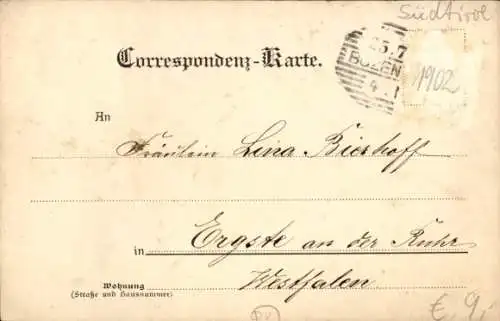 Südtirol
Correspondenz-Karte.
25.7
BOZEN
4
1902
An
Fräulein Lina Bierhoff
in Ergste an der Ruhr
Westfalen
Wohnung
(Straße und Hausnummer)
€ 9,-